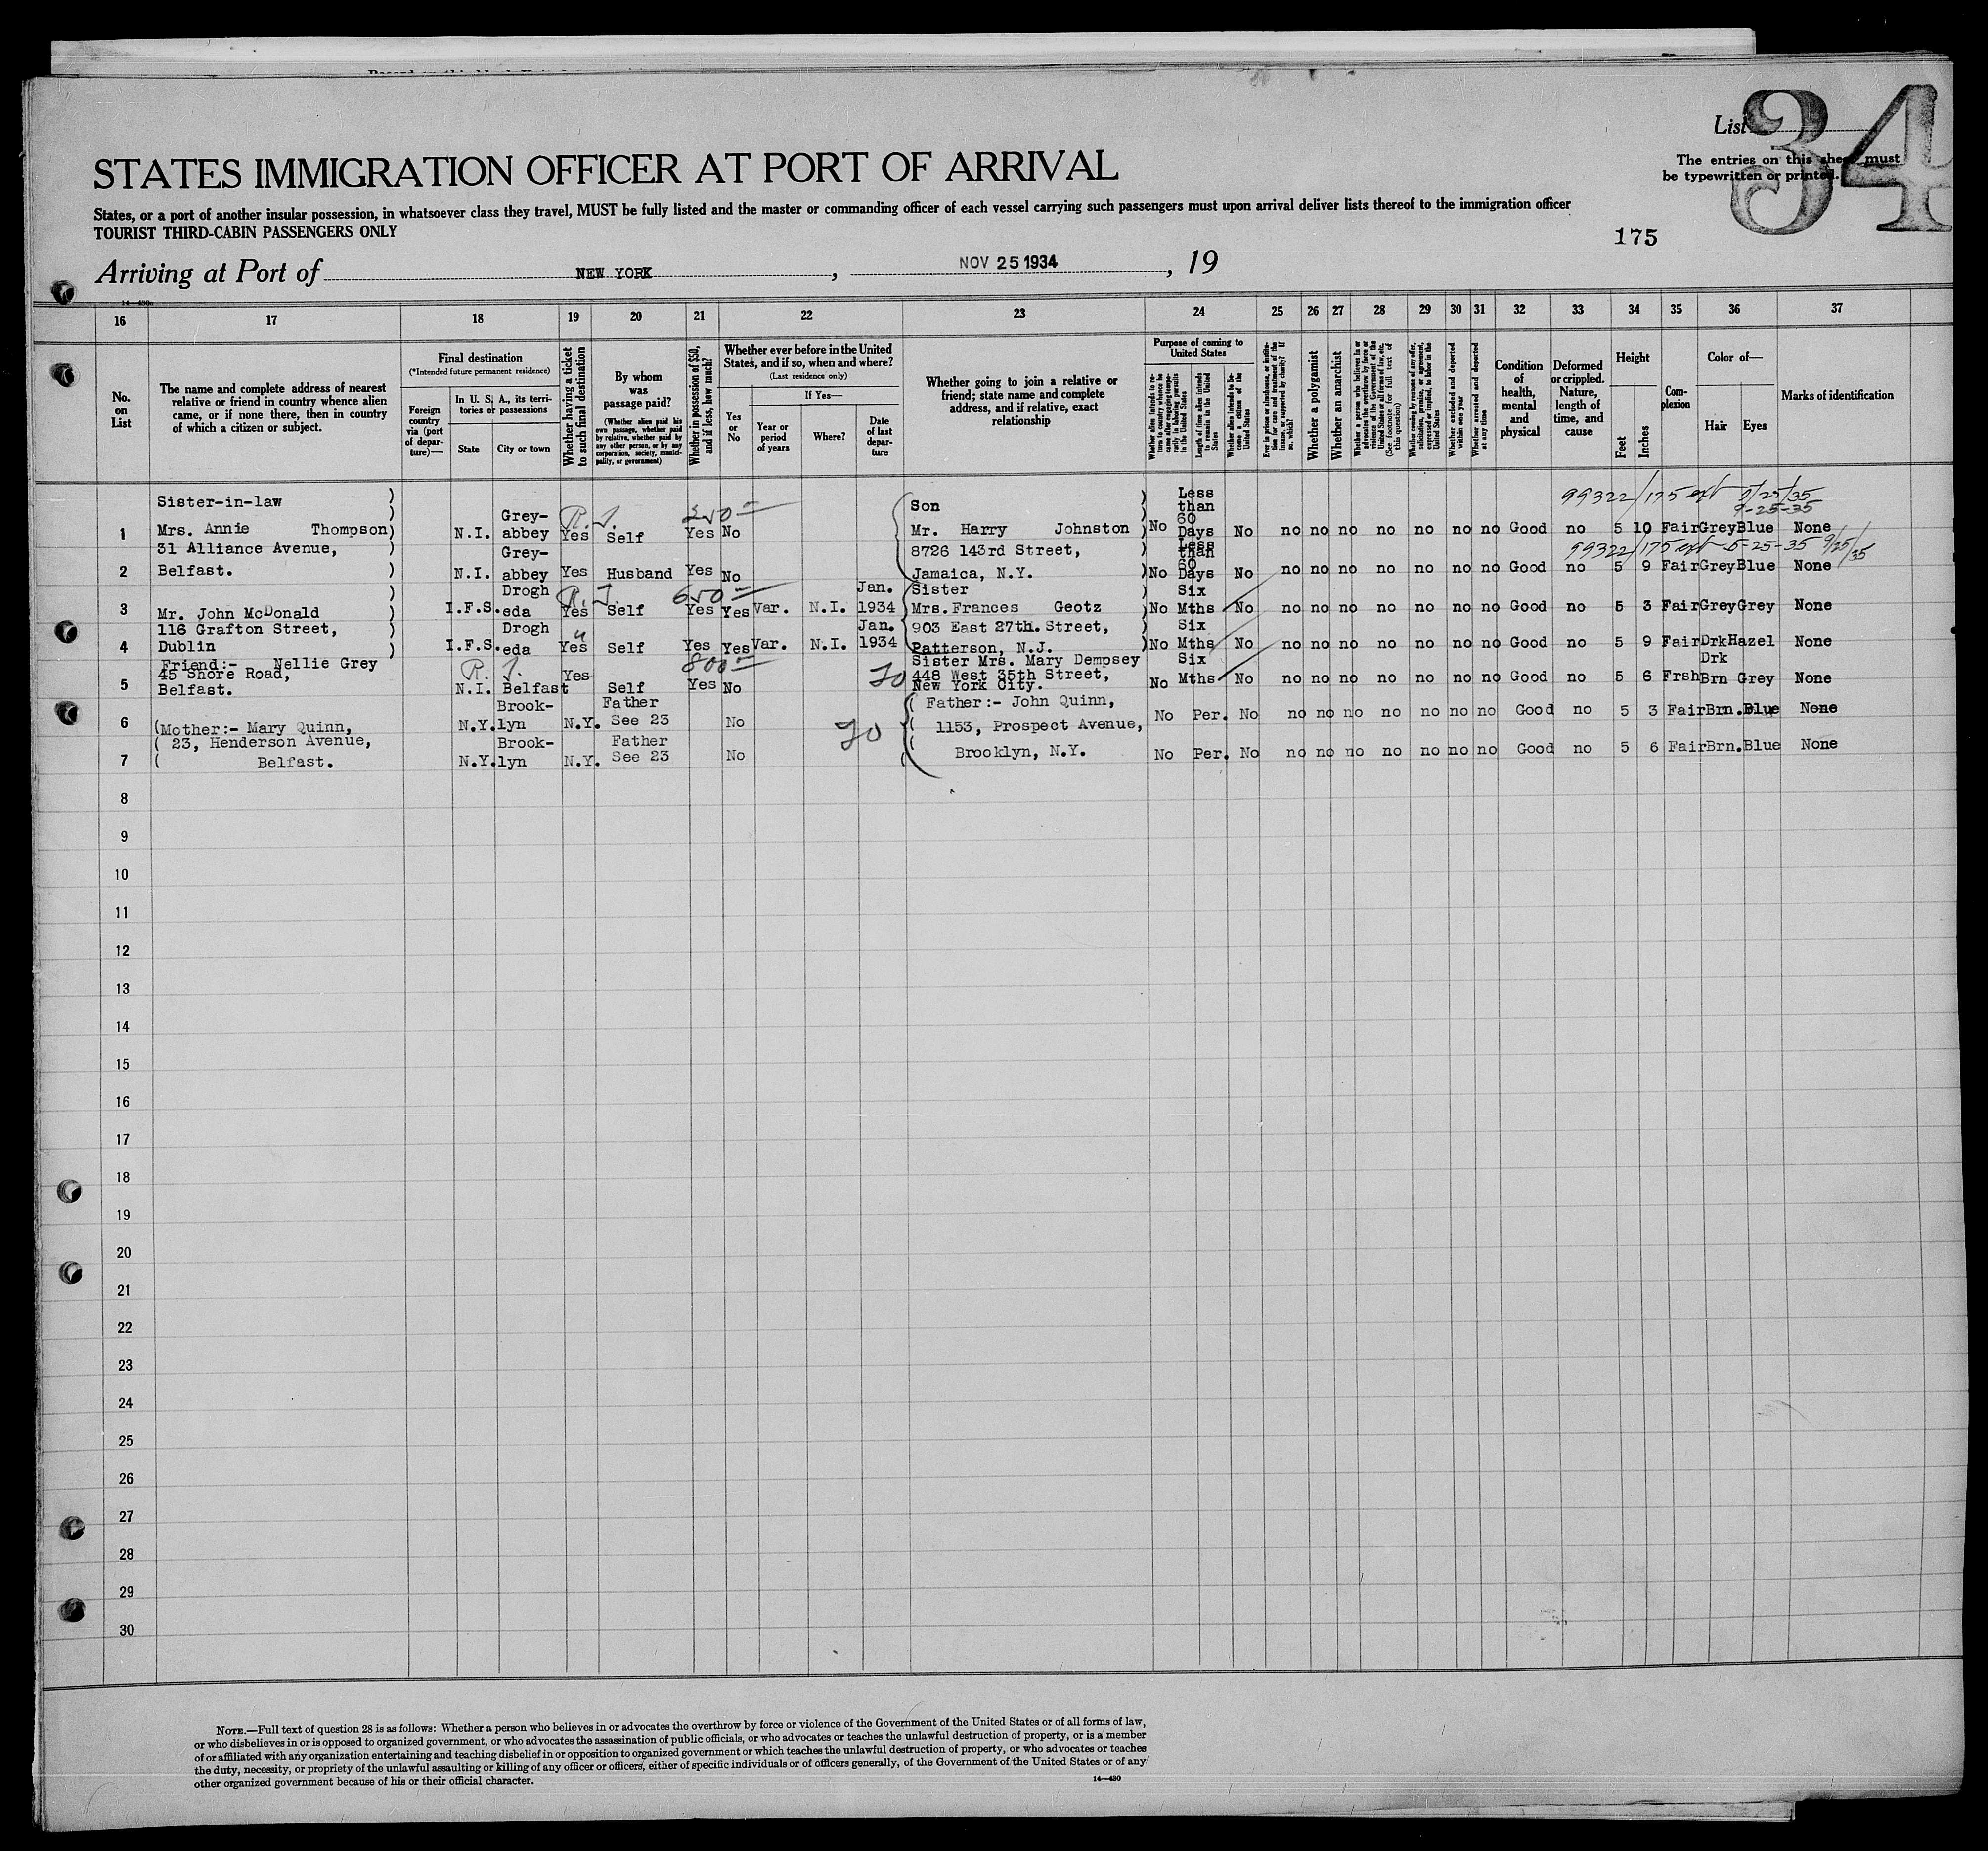 List 34
The entries on this sheet must
be typewritten or printed.
STATES IMMIGRATION OFFICER AT PORT OF ARRIVAL
States, or a port of another insular possession, in whatsoever class they travel, MUST be fully listed and the master or commanding officer of each vessel carrying such passengers must upon arrival deliver lists thereof to the immigration officer
TOURIST THIRD-CABIN PASSENGERS ONLY
175
Arriving at Port of NEW YORK, NOV 25 1934, 19
14—430c
16 17 18 19 20 21 22 23 24 25 26 27 28 29 30 31 32 33 34 35 36 37
No. on List
The name and complete address of nearest
relative or friend in country whence alien
came, or if none there, then in country
of which a citizen or subject.
Final destination
(*Intended future permanent residence)
Foreign country via (port of departure)—
In U. S. A., its territories or possessions
State
City or town
Whether having a ticket to such final destination
By whom was passage paid?
(Whether alien paid his own passage, whether paid by relative, whether paid by any other person, or by any corporation, society, municipality, or government)
Whether in possession of $50, and if less, how much?
Whether ever before in the United States, and if so, when and where?
(Last residence only)
Yes or No
If Yes—
Year or period of years
Where?
Date of last departure
Whether going to join a relative or
friend; state name and complete
address, and if relative, exact
relationship
Purpose of coming to United States
Whether alien intends to return to country whence he came after engaging temporarily in laboring pursuits in the United States
Length of time alien intends to remain in the United States
Whether alien intends to become a citizen of the United States
Ever in prison or almshouse, or institution for care and treatment of the insane, or supported by charity? If so, which?
Whether a polygamist
Whether an anarchist
Whether a person who believes in or advocates the overthrow by force or violence of the Government of the United States or all forms of law, etc. (See footnote for full text of this question)
Whether coming by reason of any offer, solicitation, promise, or agreement, expressed or implied, to labor in the United States
Whether excluded and deported within one year
Whether arrested and deported at any time
Condition of health, mental and physical
Deformed or crippled. Nature, length of time, and cause
Height
Feet
Inches
Complexion
Color of—
Hair
Eyes
Marks of identification
99322/175 ext 9/25/35
9-25-35
Sister-in-law
1 Mrs. Annie Thompson) N.I. Grey-abbey R.T. Yes Self 250 Yes No Son Mr. Harry Johnston No Less than 60 Days No no no no no no no no Good no 5 10 Fair Grey Blue None
99322/175 ext 5-25-35 9/25/35
31 Alliance Avenue,
8726 143rd Street,
2 Belfast. N.I. Grey-abbey Yes Husband Yes No Jamaica, N.Y. No Less than 60 Days No no no no no no no no Good no 5 9 Fair Grey Blue None
3 Mr. John McDonald I.F.S. Drogheda R.T. Yes Self 650 Yes Yes Var. N.I. Jan. 1934 Sister Mrs. Frances Geotz No Six Mths No no no no no no no no Good no 5 3 Fair Grey Grey None
116 Grafton Street,
903 East 27th. Street,
4 Dublin I.F.S. Drogheda " Yes Self Yes Yes Var. N.I. Jan. 1934 Patterson, N.J. No Six Mths No no no no no no no no Good no 5 9 Fair Drk Hazel None
Friend:- Nellie Grey
45 Shore Road,
5 Belfast. N.I. Belfast R.T. Yes Self 800 Yes No Sister Mrs. Mary Dempsey 448 West 35th Street, New York City. No Six Mths No no no no no no no no Good no 5 6 Frsh Drk Brn Grey None
6 (Mother:- Mary Quinn, N.Y. Brook-lyn N.Y. Father See 23 No ( Father:- John Quinn, 1153, Prospect Avenue, No Per. No no no no no no no no Good no 5 3 Fair Brn. Blue None
( 23, Henderson Avenue,
7 ( Belfast. N.Y. Brook-lyn N.Y. Father See 23 No Brooklyn, N.Y. No Per. No no no no no no no no Good no 5 6 Fair Brn. Blue None
8
9
10
11
12
13
14
15
16
17
18
19
20
21
22
23
24
25
26
27
28
29
30
NOTE.—Full text of question 28 is as follows: Whether a person who believes in or advocates the overthrow by force or violence of the Government of the United States or of all forms of law,
or who disbelieves in or is opposed to organized government, or who advocates the assassination of public officials, or who advocates or teaches the unlawful destruction of property, or is a member
of or affiliated with any organization entertaining and teaching disbelief in or opposition to organized government or which teaches the unlawful destruction of property, or who advocates or teaches
the duty, necessity, or propriety of the unlawful assaulting or killing of any officer or officers, either of specific individuals or of officers generally, of the Government of the United States or of any
other organized government because of his or their official character.
14—430